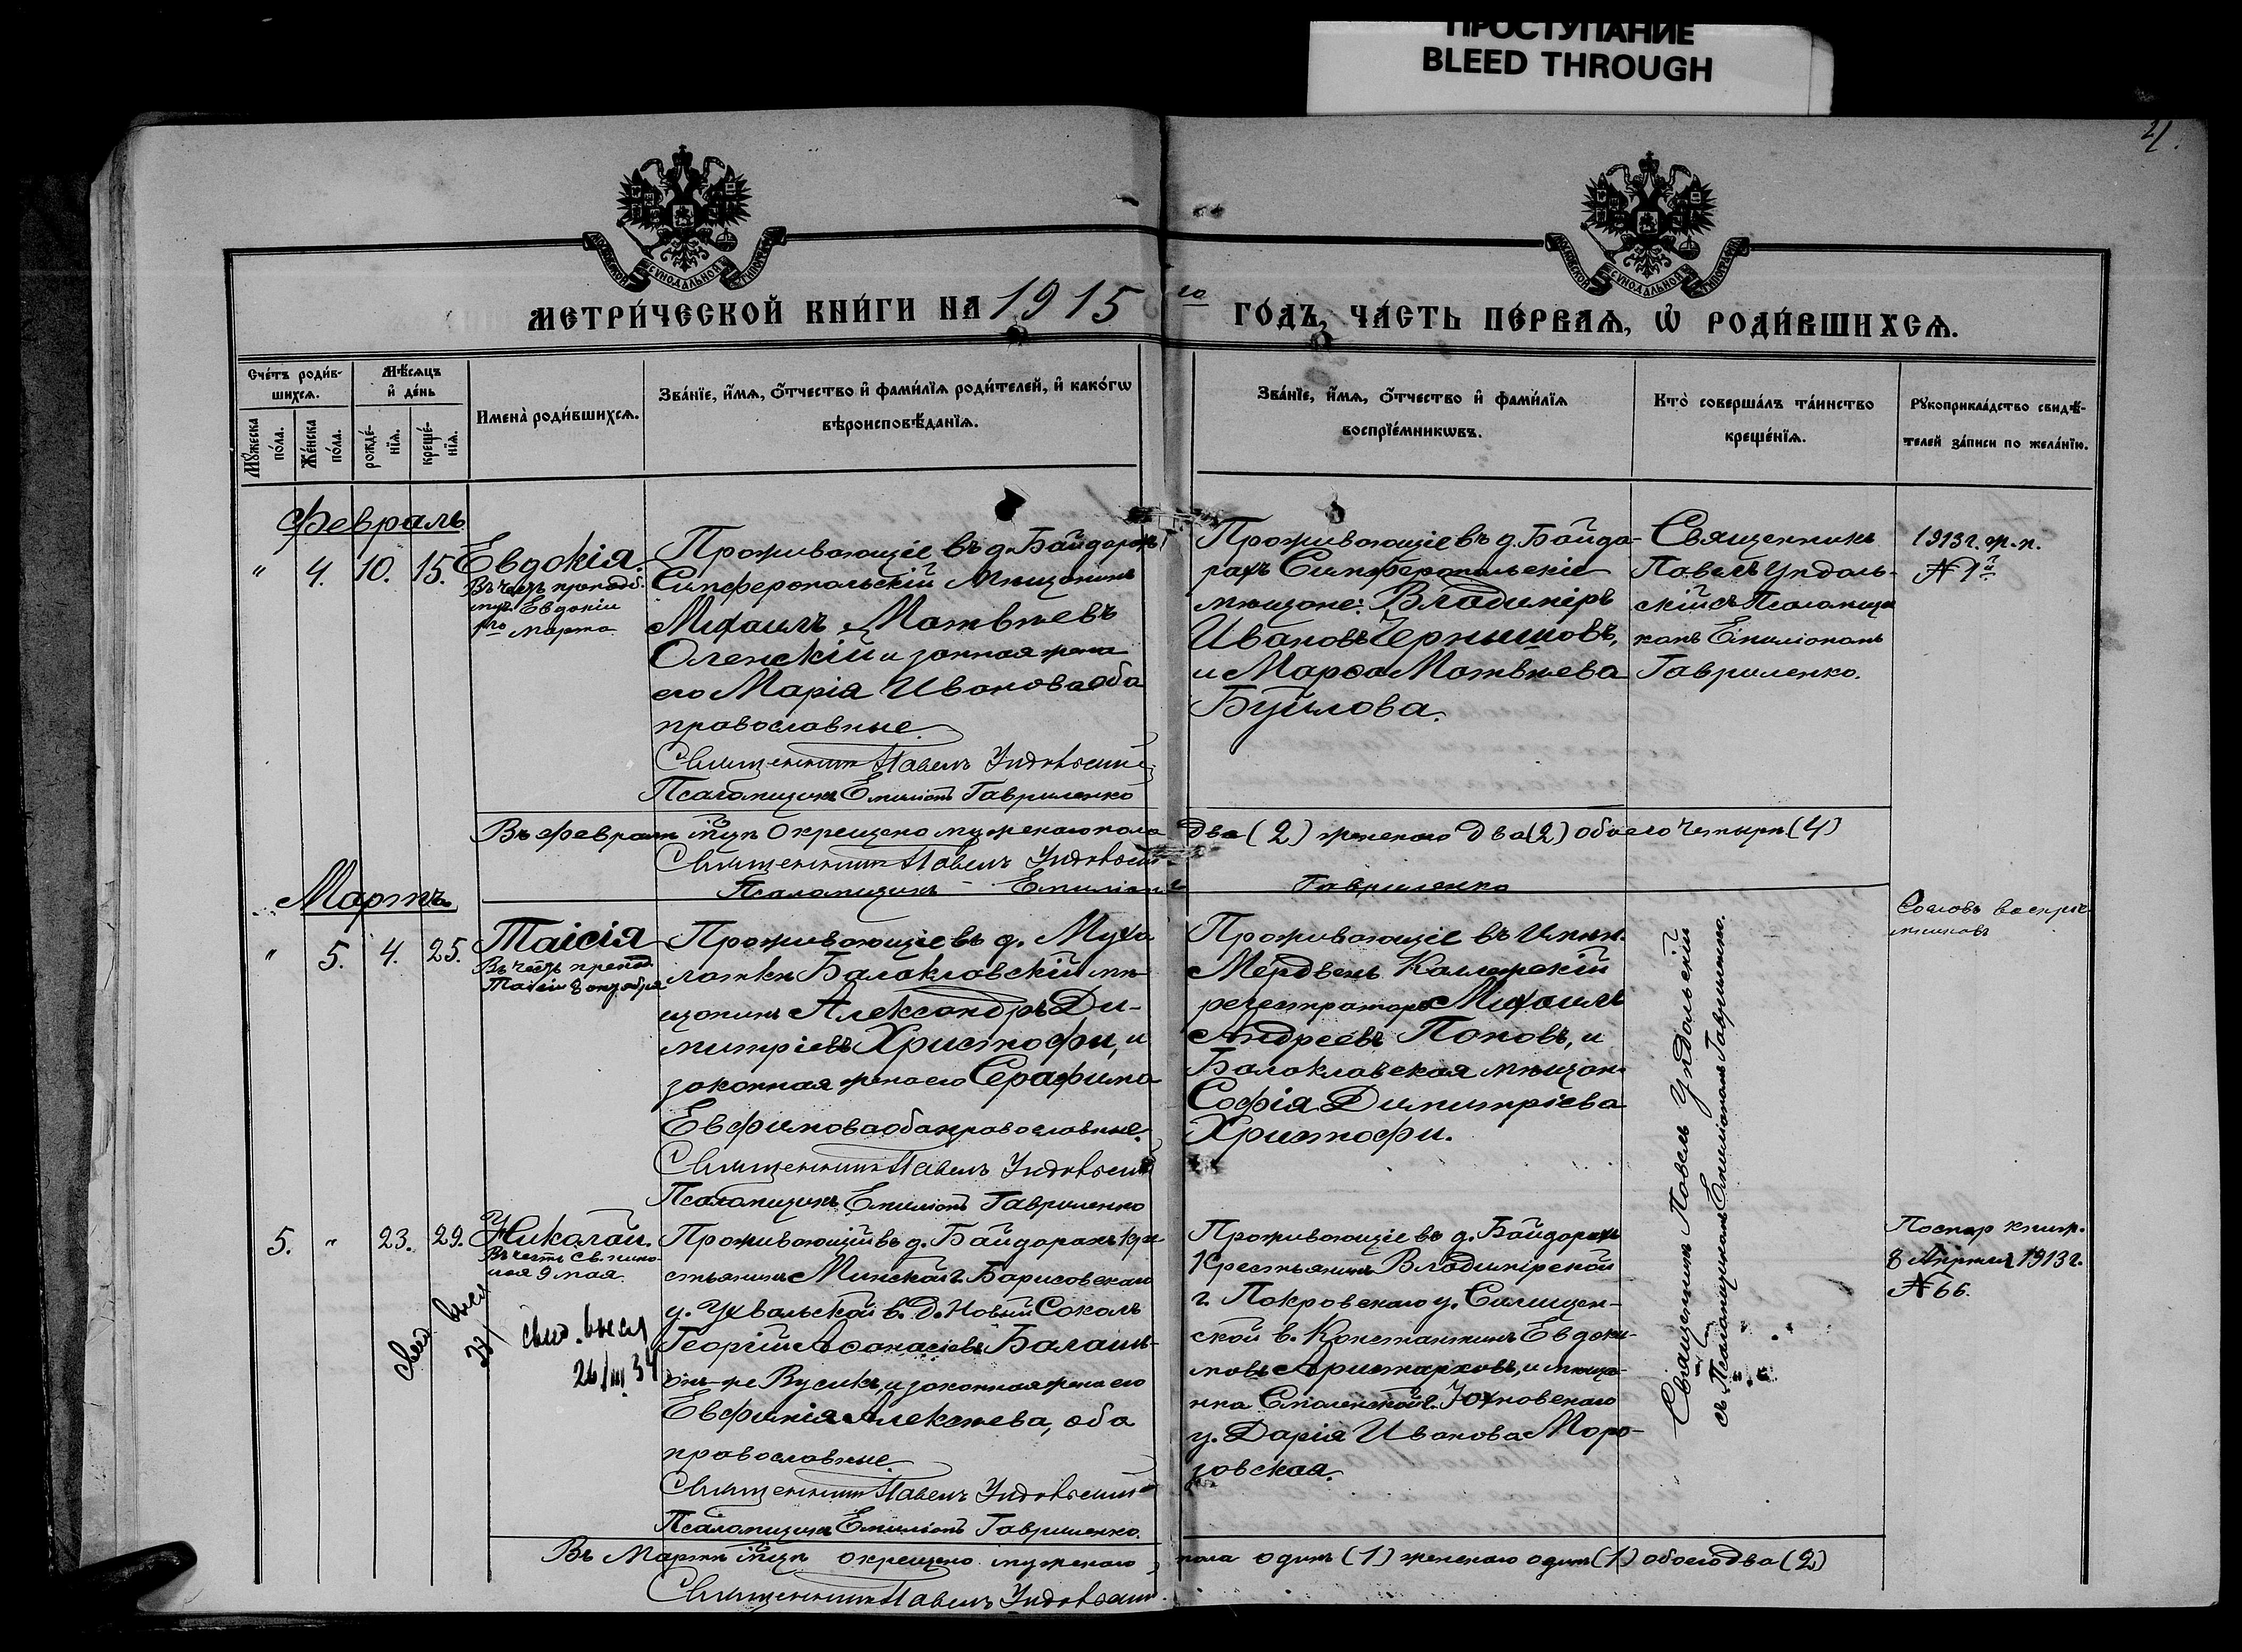 ПРОСТУПАНИЕ
BLEED THROUGH
21.
МОСКОВСКОЙ СУНОДАЛЬНОЙ ТИПОГРАФІИ
МОСКОВСКОЙ СУНОДАЛЬНОЙ ТИПОГРАФІИ
МЕТРИ́ЧЕСКОЙ КНИ́ГИ НА 1915 го ГО́ДЪ, ЧА́СТЬ ПЕ́РВАѦ, Ѡ҆ РОДИ́ВШИХСѦ.
Сче́тъ роди́в-
шихсѧ.
Мꙋ́жеска
по́ла.
Же́нска
по́ла.
Мѣ́сѧцъ
и҆ де́нь
рожде́-
нїѧ.
креще́-
нїѧ.
Имена̀ роди́вшихсѧ.
Зва́нїе, и҆́мѧ, ѻ҆́тчество и҆ фами́лїѧ роди́телей, и҆ како́гѡ
вѣроисповѣ́данїѧ.
Зва́нїе, и҆́мѧ, ѻ҆́тчество и҆ фами́лїѧ
воспрїе́мникѡвъ.
Кто̀ соверша́лъ та́инство
креще́нїѧ.
Рꙋкоприкла́дство свидѣ́-
телей за́писи по жела́нїю.
Февраль
" 4. 10. 15.
Евдокія.
Въ честь преподб.
муч. Евдокіи
1го марта.
Проживающіе въ д. Байдарахъ
Симферопольскій мѣщанинъ
Михаилъ Матвѣевъ
Оленскій и законная жена
его Марія Иванова оба
православные.
Священникъ Павелъ Ундольскій
Псаломщикъ Емиліанъ Гавриленко
Проживающіе въ д. Байда-
рахъ Симферопольскіе
мѣщане: Владиміръ
Ивановъ Чернышовъ,
и Марѳа Матвѣева
Буйлова.
Священникъ
Павелъ Ундоль-
скій съ Псаломщи
комъ Емиліаномъ
Гавриленко.
1913 г. ж.п.
№ 1й
Въ февралѣ мцѣ окрещено мужескаго пола два (2) женскаго два (2) обоего четыре (4)
Священникъ Павелъ Ундольскій
Псаломщикъ Емиліанъ Гавриленко
Мартъ
" 5. 4. 25.
Таисія
Въ честь препод.
Таисіи 8 октября
Проживающіе въ д. Муха
латкѣ Балаклавскій мѣ-
щанинъ Александръ Ди-
митріевъ Христофи, и
законная жена его Серафима
Евфимова оба православные.
Священникъ Павелъ Ундольскій
Псаломщикъ Емиліанъ Гавриленко
Проживающіе въ имѣн.
Мердвень Коллежскій
регистраторъ Михаилъ
Андреевъ Поповъ, и
Балаклавская мѣщан.
Софія Димитріева
Христофи.
Священникъ Павелъ Ундольскій
съ Псаломщикомъ Емиліаномъ Гавриленко.
5. " 23. 29.
Николай.
Въ честь Св. Нико
лая 9 мая.
свид. выся
26/III 34
Проживающій въ д. Байдарахъ кре
стьянинъ Минской г. Борисовскаго
у. Ухвальской в. д. Новый Соколъ
Георгій Аѳанасіевъ Балашъ-
онъ-же Вусикъ, и законная жена его
Евфимія Алексѣева, оба
православные.
Священникъ Павелъ Ундольскій
Псаломщикъ Емиліанъ Гавриленко.
Проживающіе въ д. Байдарахъ
Крестьянинъ Владимірской
г. Покровскаго у. Селищен-
ской в. Константинъ Евдоки-
мовъ Аристарховъ, и мѣща-
нка Смоленской г. Юхновскаго
у. Дарія Иванова Моро-
зовская.
8 Апрѣля 1913 г.
№ 66.
Въ Мартѣ мцѣ окрещено мужескаго пола одинъ (1) женскаго одинъ (1) обоего два (2)
Священникъ Павелъ Ундольскій